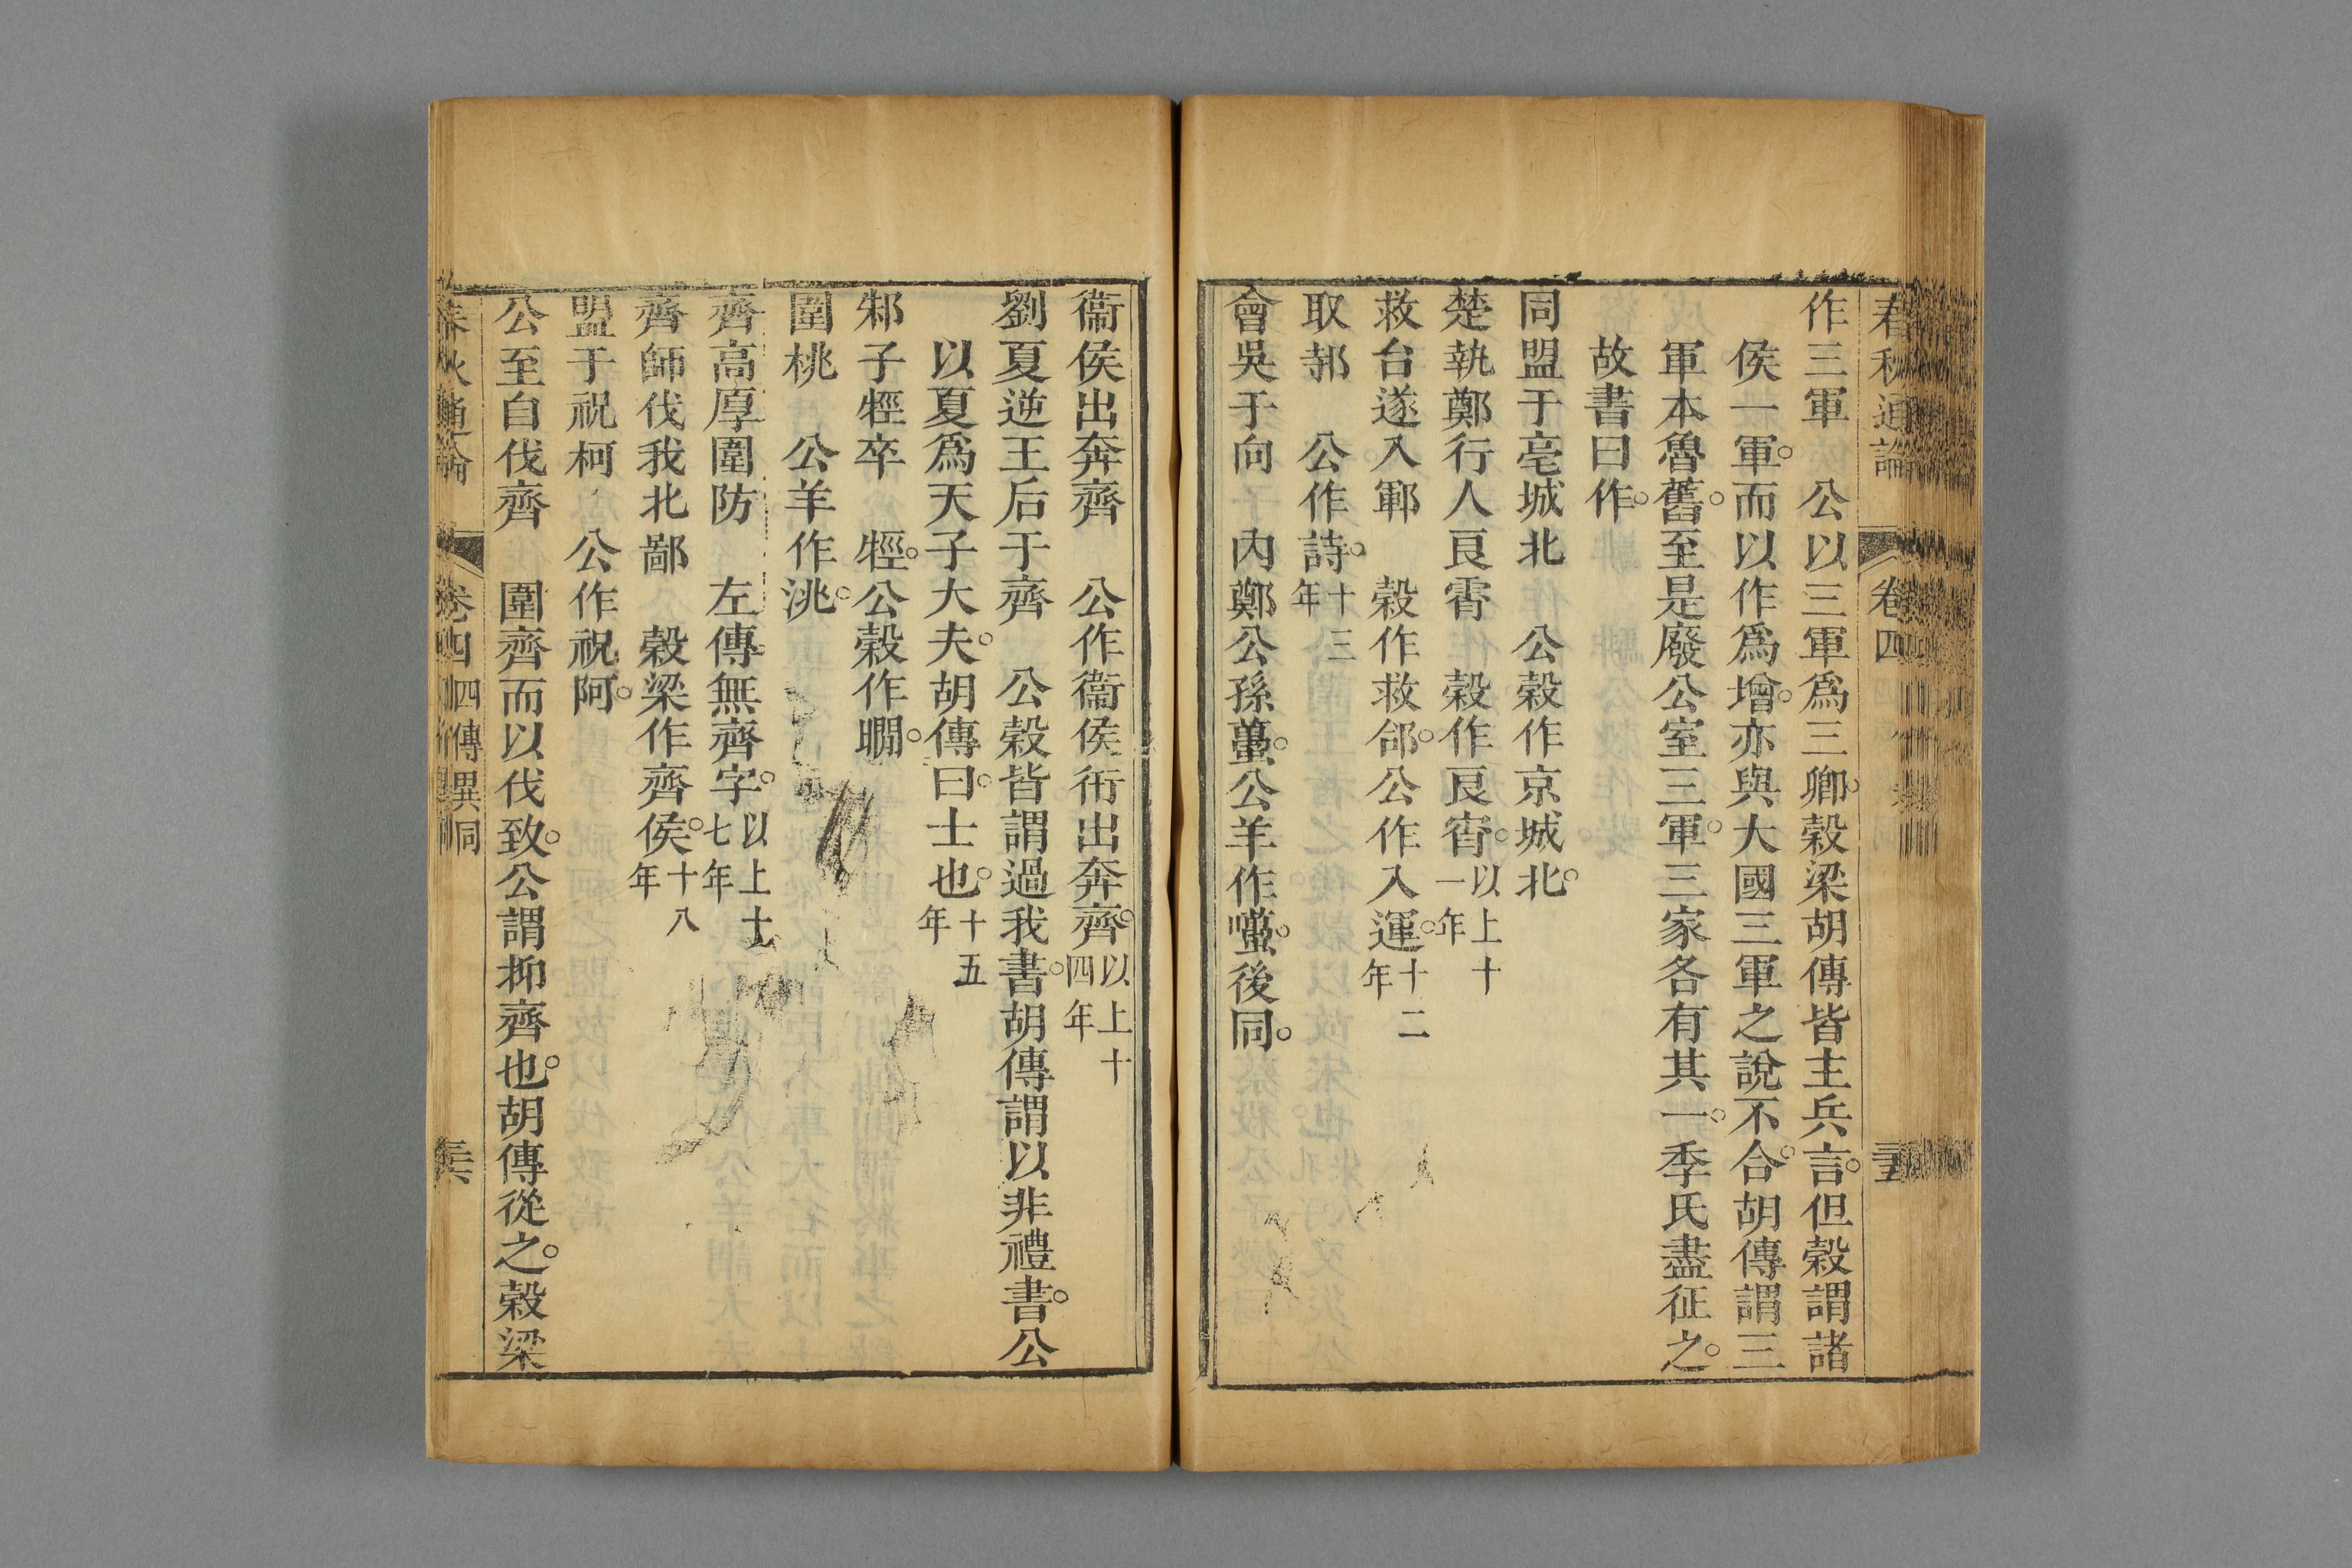 春秋通論 卷四 三五
作三軍 公以三軍爲三卿。穀梁胡傳皆主兵言。但穀謂諸
侯一軍。而以作爲增。亦與大國三軍之說不合。胡傳謂三
軍本魯舊。至是廢公室三軍。三家各有其一。季氏盡征之。
故書曰作。
同盟于亳城北 公穀作京城北。
楚執鄭行人良霄 穀作良宵。以上十一年
救台遂入鄆 穀作救郃。公作入運。十二年
取邿 公作詩。十三年
會吳于向 內鄭公孫蠆。公羊作囆。後同。
衞侯出奔齊 公作衞侯衎出奔齊。以上十四年
劉夏逆王后于齊 公穀皆謂過我書。胡傳謂以非禮書。公
以夏爲天子大夫。胡傳曰。士也。十五年
邾子牼卒 牼。公穀作瞯。
圍桃 公羊作洮。
齊高厚圍防 左傳無齊字。以上十七年
齊師伐我北鄙 穀梁作齊侯。十八年
盟于祝柯 公作祝阿。
公至自伐齊 圍齊而以伐致。公謂抑齊也。胡傳從之。穀梁
春秋通論 卷四 四傳異同 三六